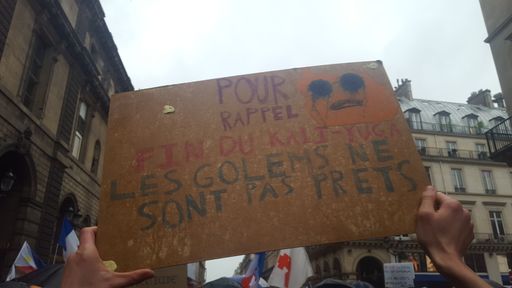 POUR
RAPPEL
FIN DU KALI-YUGA
LES GOLEMS NE
SONT PAS PRETS